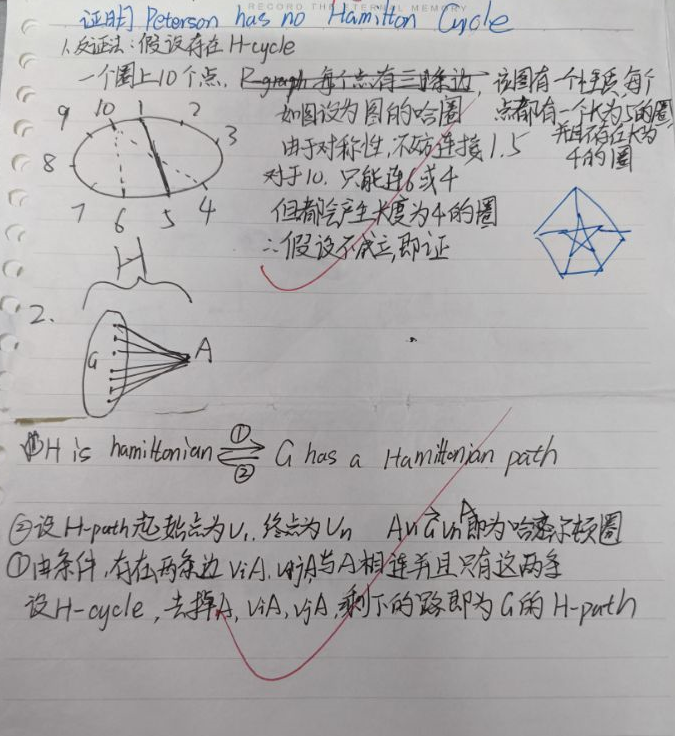 RECORD THE ETERNAL MEMORY
证明 Peterson has no Hamilton Cycle
1. 反证法：假设存在 H-cycle
一个圈上10个点, P-graph 每个点有三条边, 该图有一个性质, 每个
点都有一个长为5的圈,
并且不存在长为
4的圈
如图设为图的哈圈
由于对称性, 不妨连接1.5
对于10. 只能连6或4
但都会产生长度为4的圈
∴假设不成立, 即证
9 10 1 2
3
8
7 6 5 4
H
2.
G A
H is hamiltonian ①⇌② G has a Hamiltonian path
②设 H-path 起始点为V1, 终点为Vn 即为哈密尔顿圈
①由条件, 存在两条边 viA, vjA与A相连并且只有这两条
设H-cycle, 去掉A, viA, vjA, 剩下的路即为G的H-path